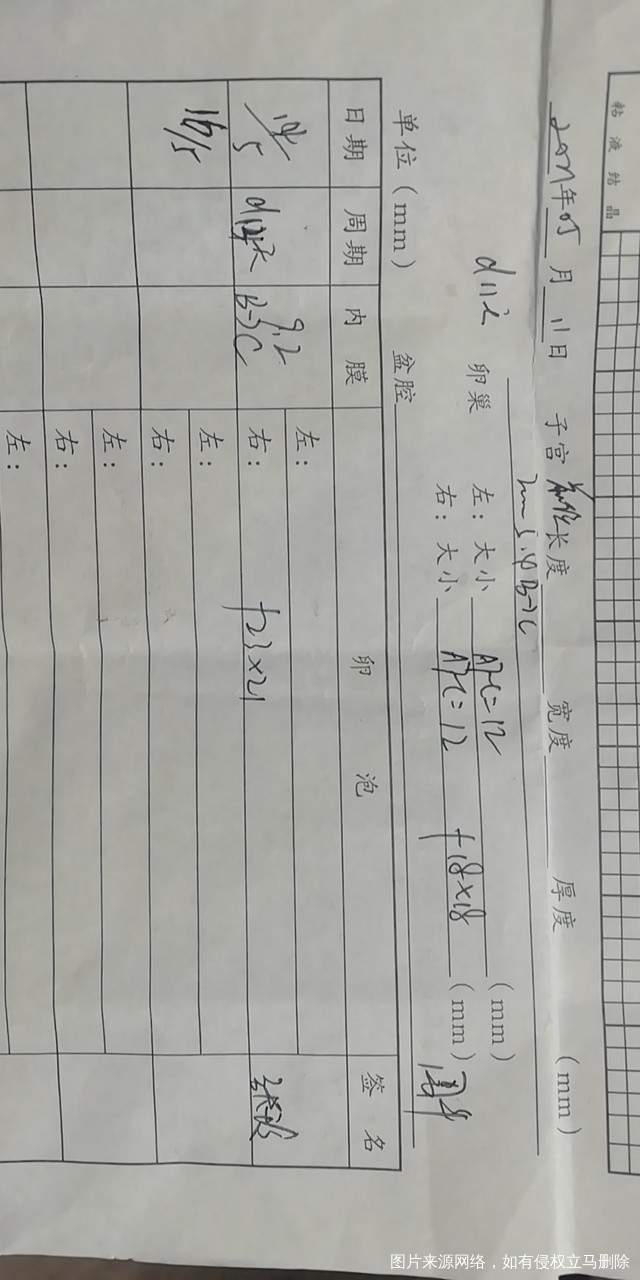 粘液结晶
年05月11日 子宫 长度 宽度 厚度 (mm)
B→C
d11之 卵巢 左：大小 AFC=12 (mm)
右：大小 AFC=12 f18×18 (mm)
单位（mm） 盆腔
日期 周期 内膜 卵泡 签名
14/5 9.2 B→C 左：
右： f23×21
16/5 左：
右：
左：
右：
左：
图片来源网络，如有侵权立马删除